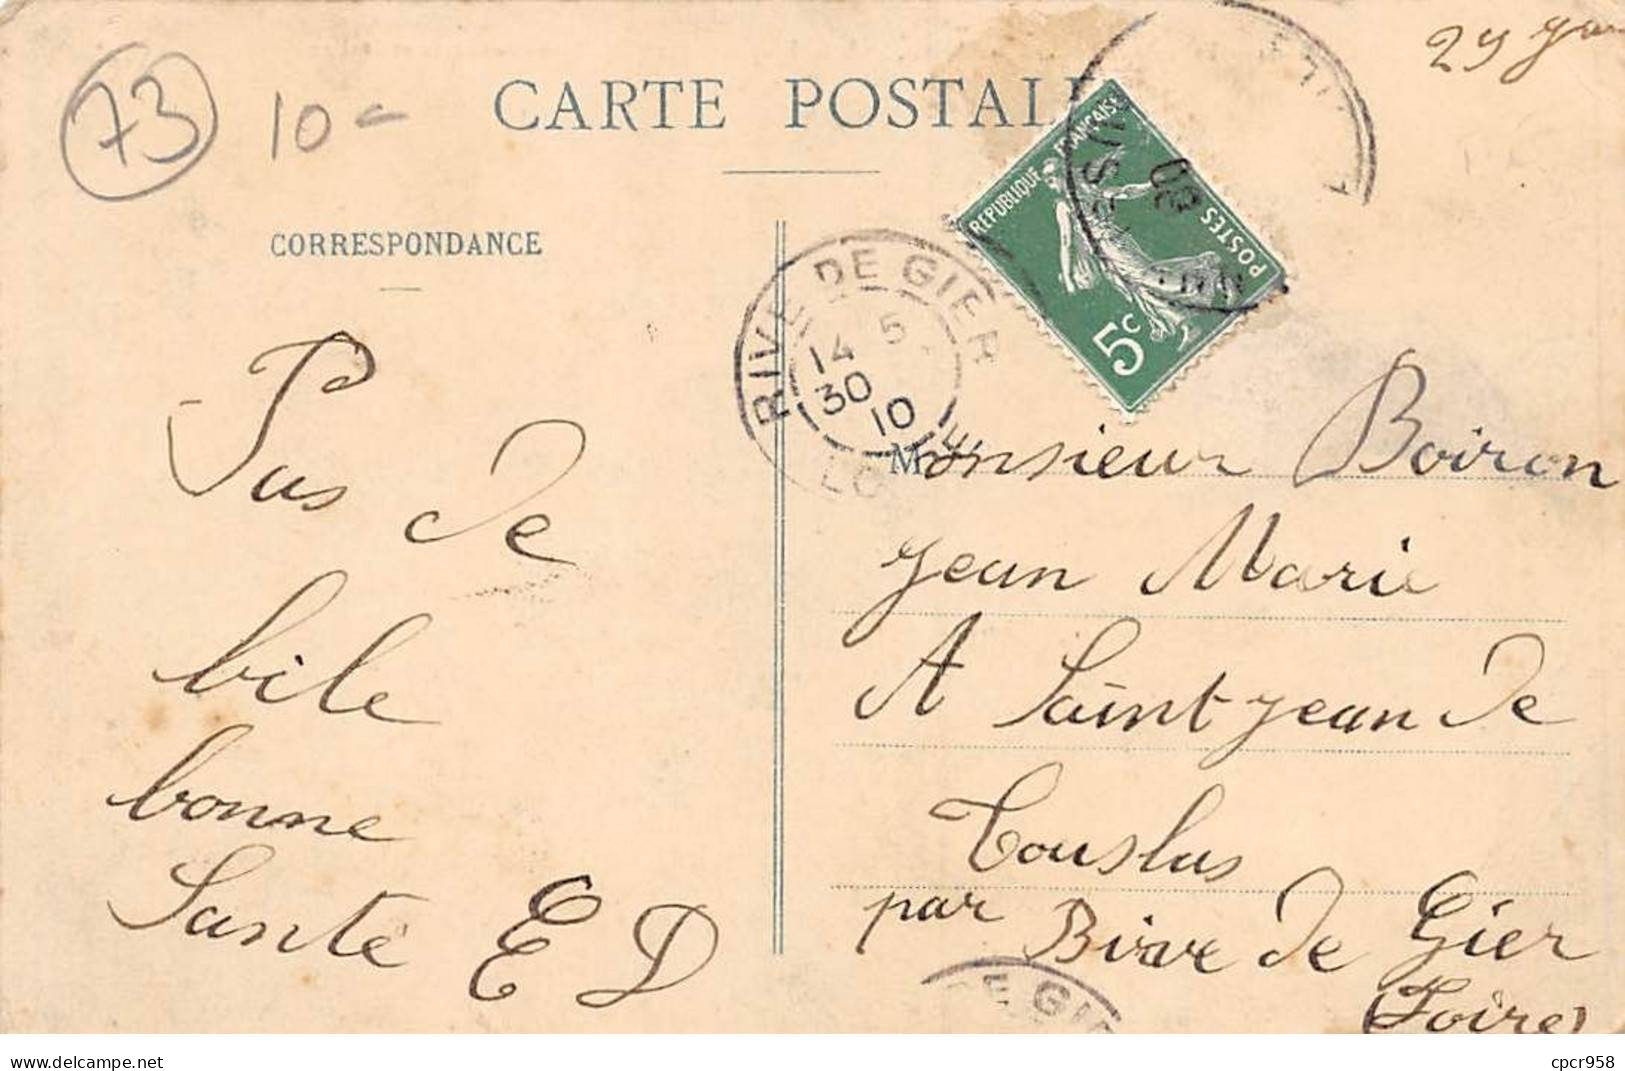 73
10-
CARTE POSTAL
CORRESPONDANCE
REPUBLIQUE FRANÇAISE
POSTES
5c
RIVE DE GIER
14 5
30
10
LOIRE
Pas de
bile
bonne
Santé E D
Monsieur Boiron
Jean Marie
A Saint Jean de
Touslas
par Rive de Gier
(Loire)
DE GIE
delcampe.net
cpcr958